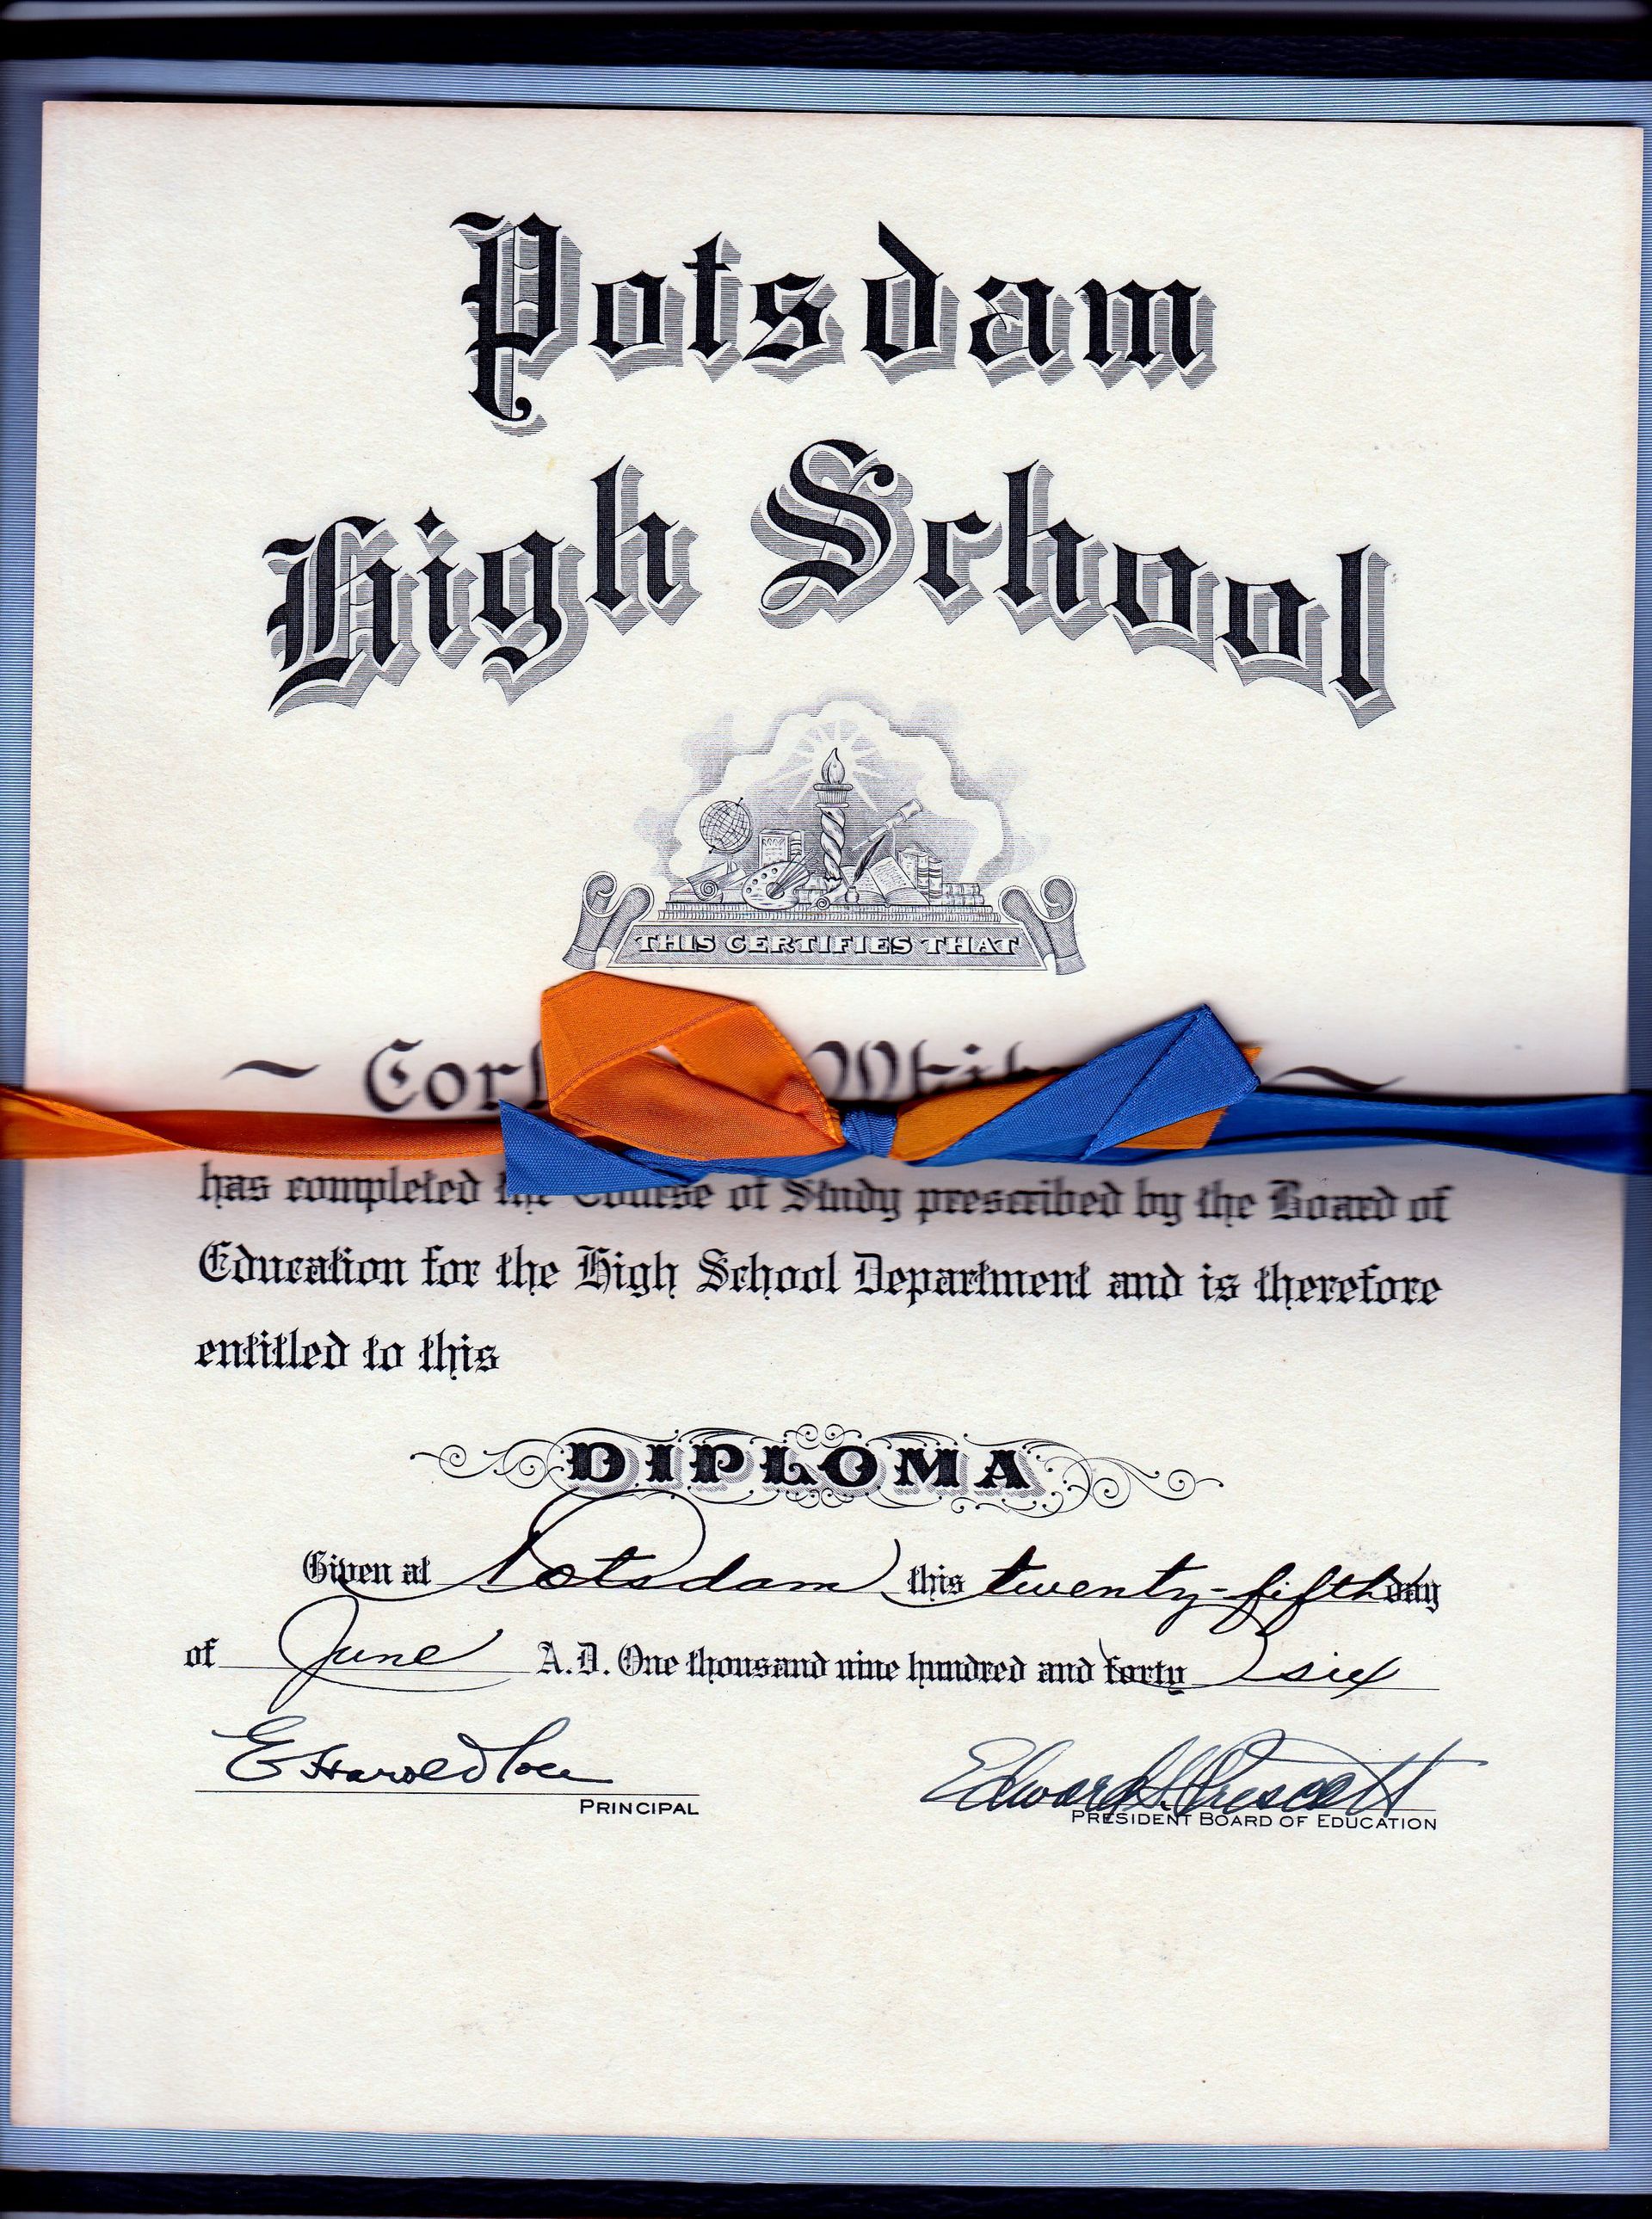 Potsdam
High School
THIS CERTIFIES THAT
has completed the Course of Study prescribed by the Board of
Education for the High School Department and is therefore
entitled to this
DIPLOMA
Given at Potsdam this twenty-fifth day
of June A.D. One thousand nine hundred and forty six
E Harold
Edward S. Prescott
PRINCIPAL
PRESIDENT BOARD OF EDUCATION